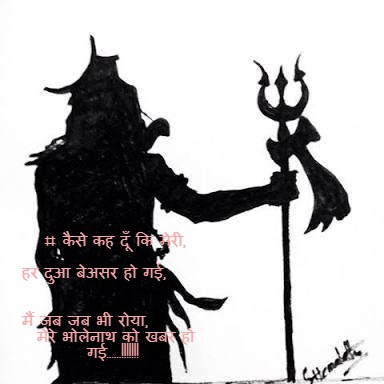 # कैसे कह दूँ कि मेरी,
हर दुआ बेअसर हो गई,
मैं जब जब भी रोया,
मेरे भोलेनाथ को खबर हो
गई.....!!!!!!!